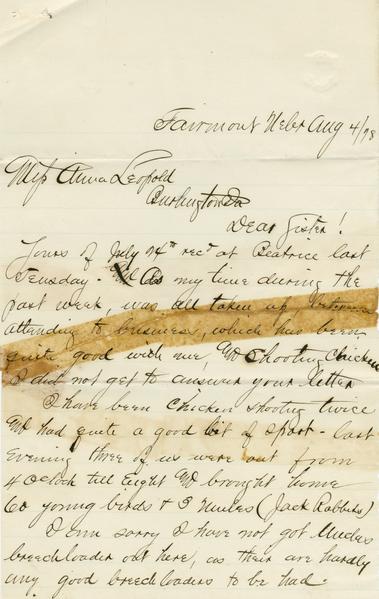 Fairmont Nebr Aug 4/78
Miss Anna Leopold
Burlington Ia
Dear Sister!
Yours of July 24th recd at Beatrice last
Tuesday - As my time during the
past week, was all taken up, between
attending to business, which has been
quite good with me, & Shooting Chicken
I did not get to answer your letter
I have been Chicken shooting twice
& had quite a good bit of sport - last
Evening three of us were out from
4 Oclock till Eight & brought home
60 young birds & 3 Mules (Jack Rabbits)
I am sorry I have not got
breechloader out here, as their are hardly
any good breechloaders to be had -